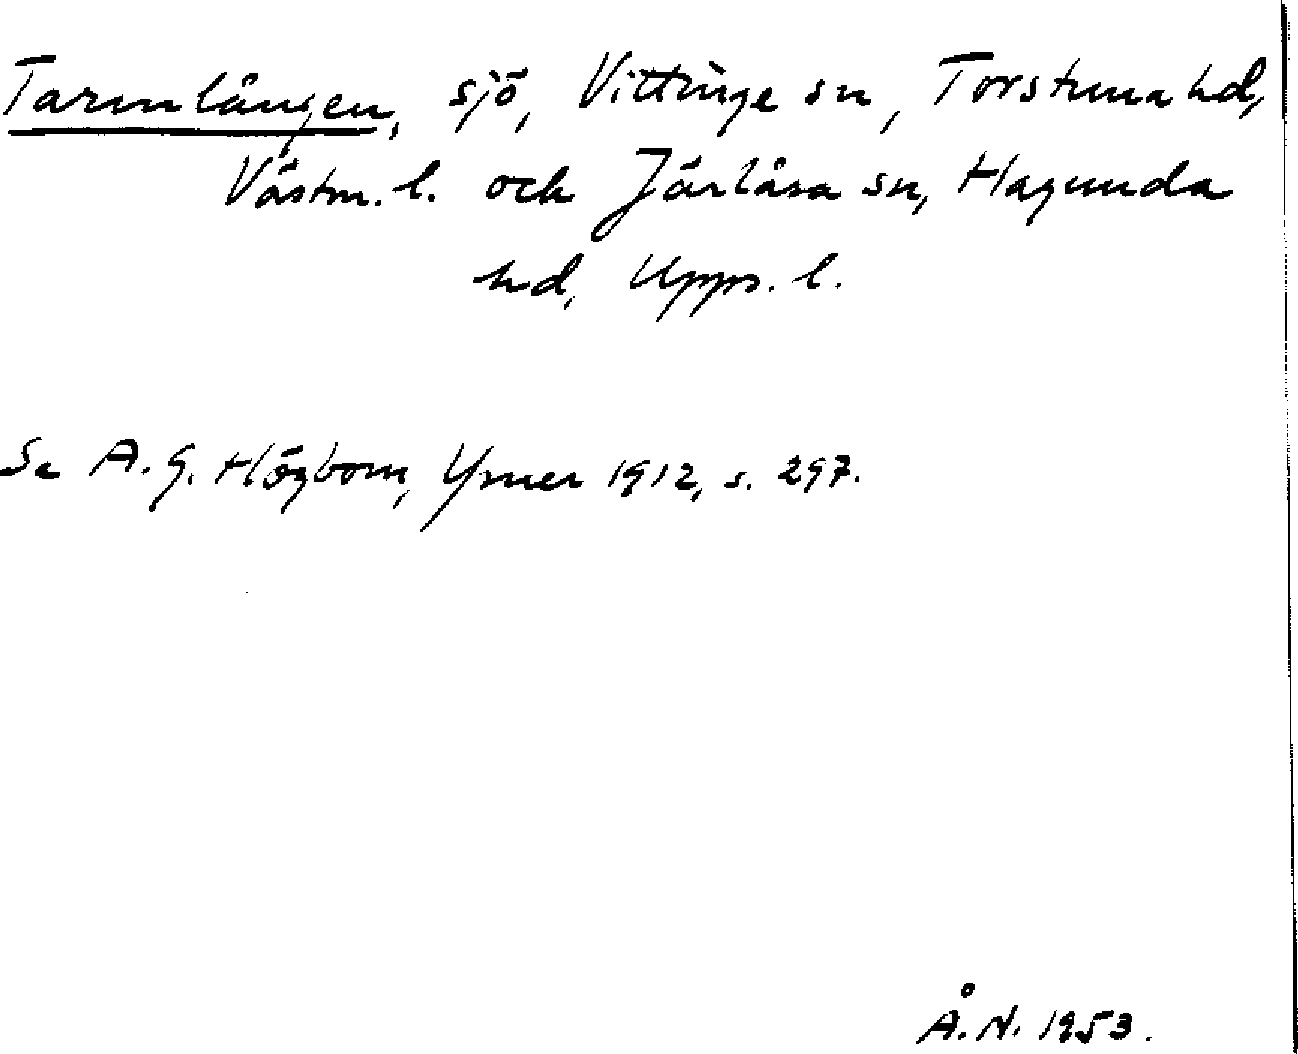 Tarmlången, sjö, Vittinge sn, Torstuna hd,
Västm. l. och Järlåsa sn, Hagunda
hd, Upps. l.
Se A. G. Högbom, Ymer 1912, s. 297.
Å. N. 1953.